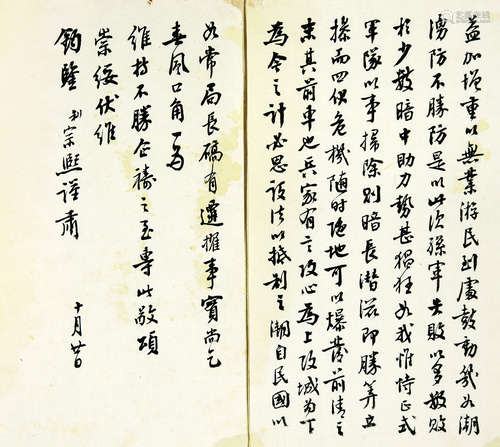 益加增重以無業游民到處鼓動幾如潮
湧防不勝防是以此次孫軍失敗以多數敗
於少數暗中助力勢甚猖狂如我惟恃正式
軍隊以事掃除則暗長潛滋即勝算立
操而四伏危機隨時隨地可以爆發前清之
末其前車也兵家有言攻心為上攻城為下
為今之計必思設法以抵制之潮自民國以
如常局長礪有違擁事實尚乞
春風口角一為
維持不勝企禱之至專此敬頌
崇綏伏維
鈞鑒 劉宗熙謹肅
十月廿日